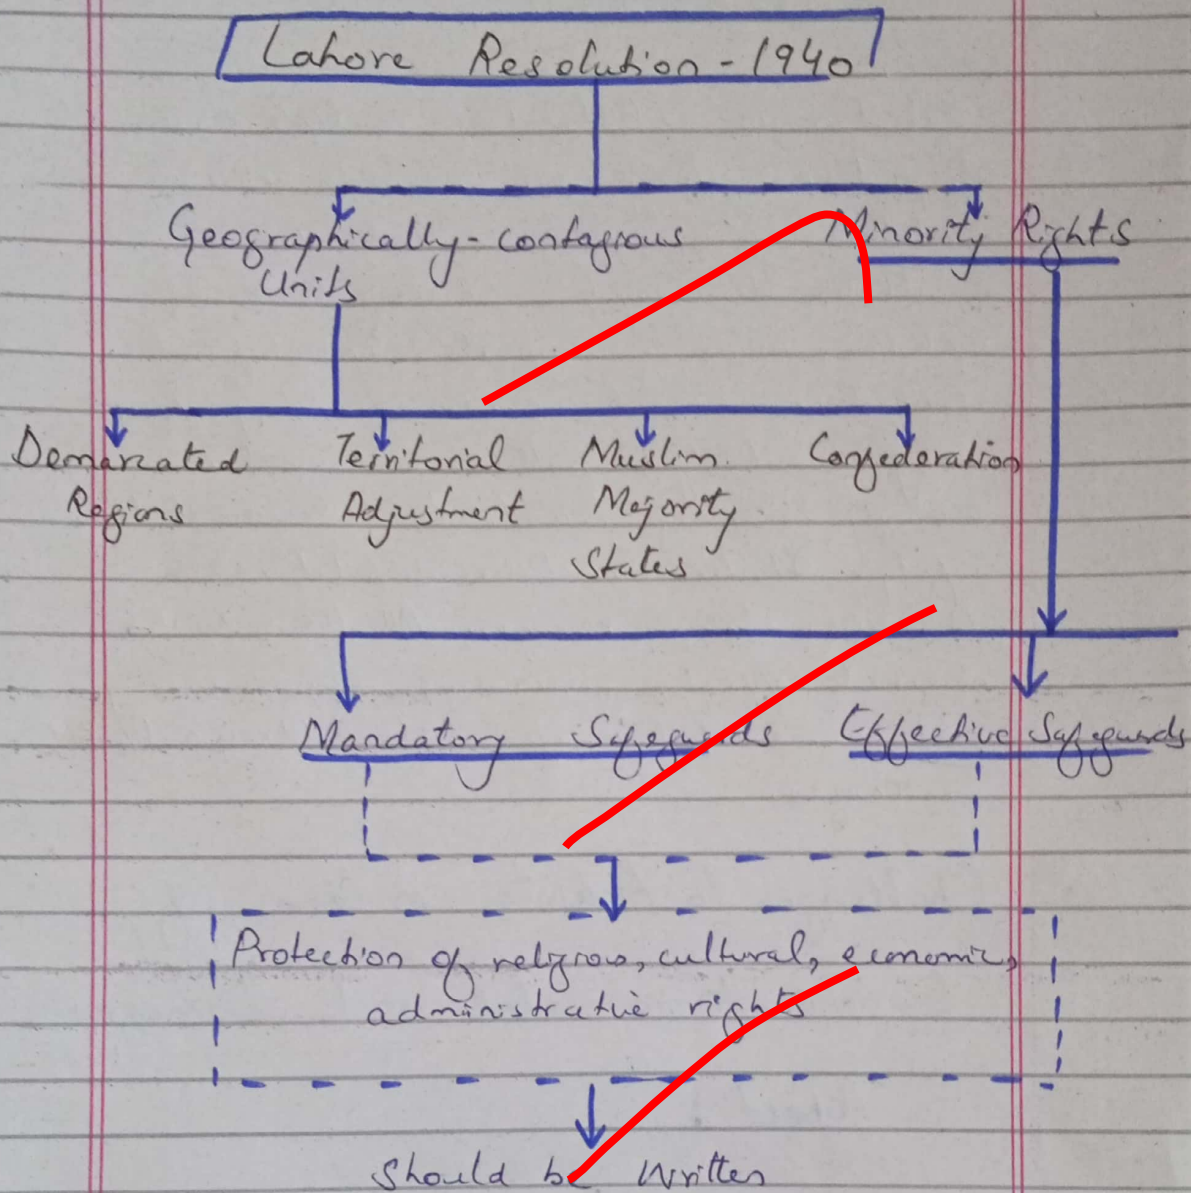 Lahore Resolution - 1940
Geographically - contagious
Units
Minority Rights
Demarcated
Regions
Territorial
Adjustment
Muslim
Majority
States
Confederation
Mandatory Safeguards
Effective Safeguards
Protection of religious, cultural, economic,
administrative rights
Should be Written